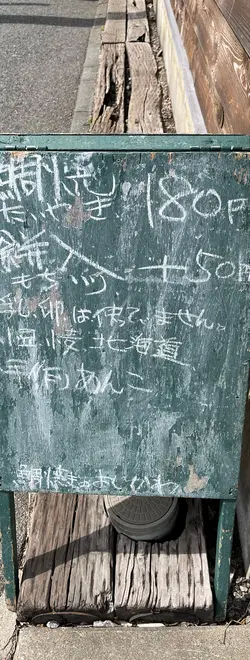 鯛焼 180円
たいやき
餅入 +50円
もちいり
乳卵は使ていません。
北海道
手作りあんこ
鯛焼きのよしかわ